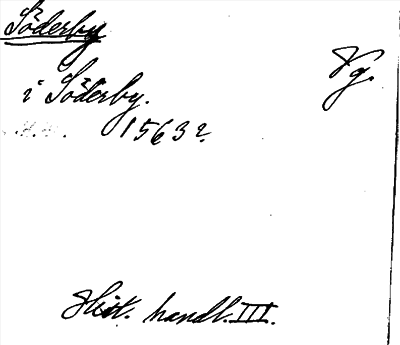 Söderby
Vg.
i Söderby.
1563 2.
Hist. handl. III.